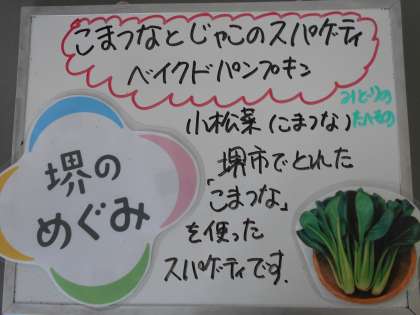 こまつなとじゃこのスパゲーティ
ベイクドパンプキン
みどりの
たべもの
小松菜(こまつな)
堺市でとれた
「こまつな」
を使った
スパゲーティです.
堺の
めぐみ